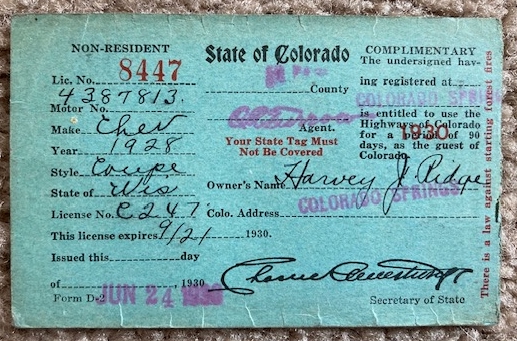 NON-RESIDENT
Lic. No. 8447
4387813.
Motor No.
Make Chev
Year 1928
Style Coupe
State of Wis
License No. C247
This license expires 9/21 1930.
Issued this day
of JUN 24 1930, 1930
Form D-2
State of Colorado
County
Agent.
Your State Tag Must
Not Be Covered
Owner's Name Harvey J. Ridge
Colo. Address COLORADO SPRINGS
Secretary of State
COMPLIMENTARY
The undersigned hav-
ing registered at
COLORADO SPRINGS
is entitled to use the
Highways of Colorado
for a period of 90
1930
days, as the guest of
Colorado.
There is a law against starting forest fires